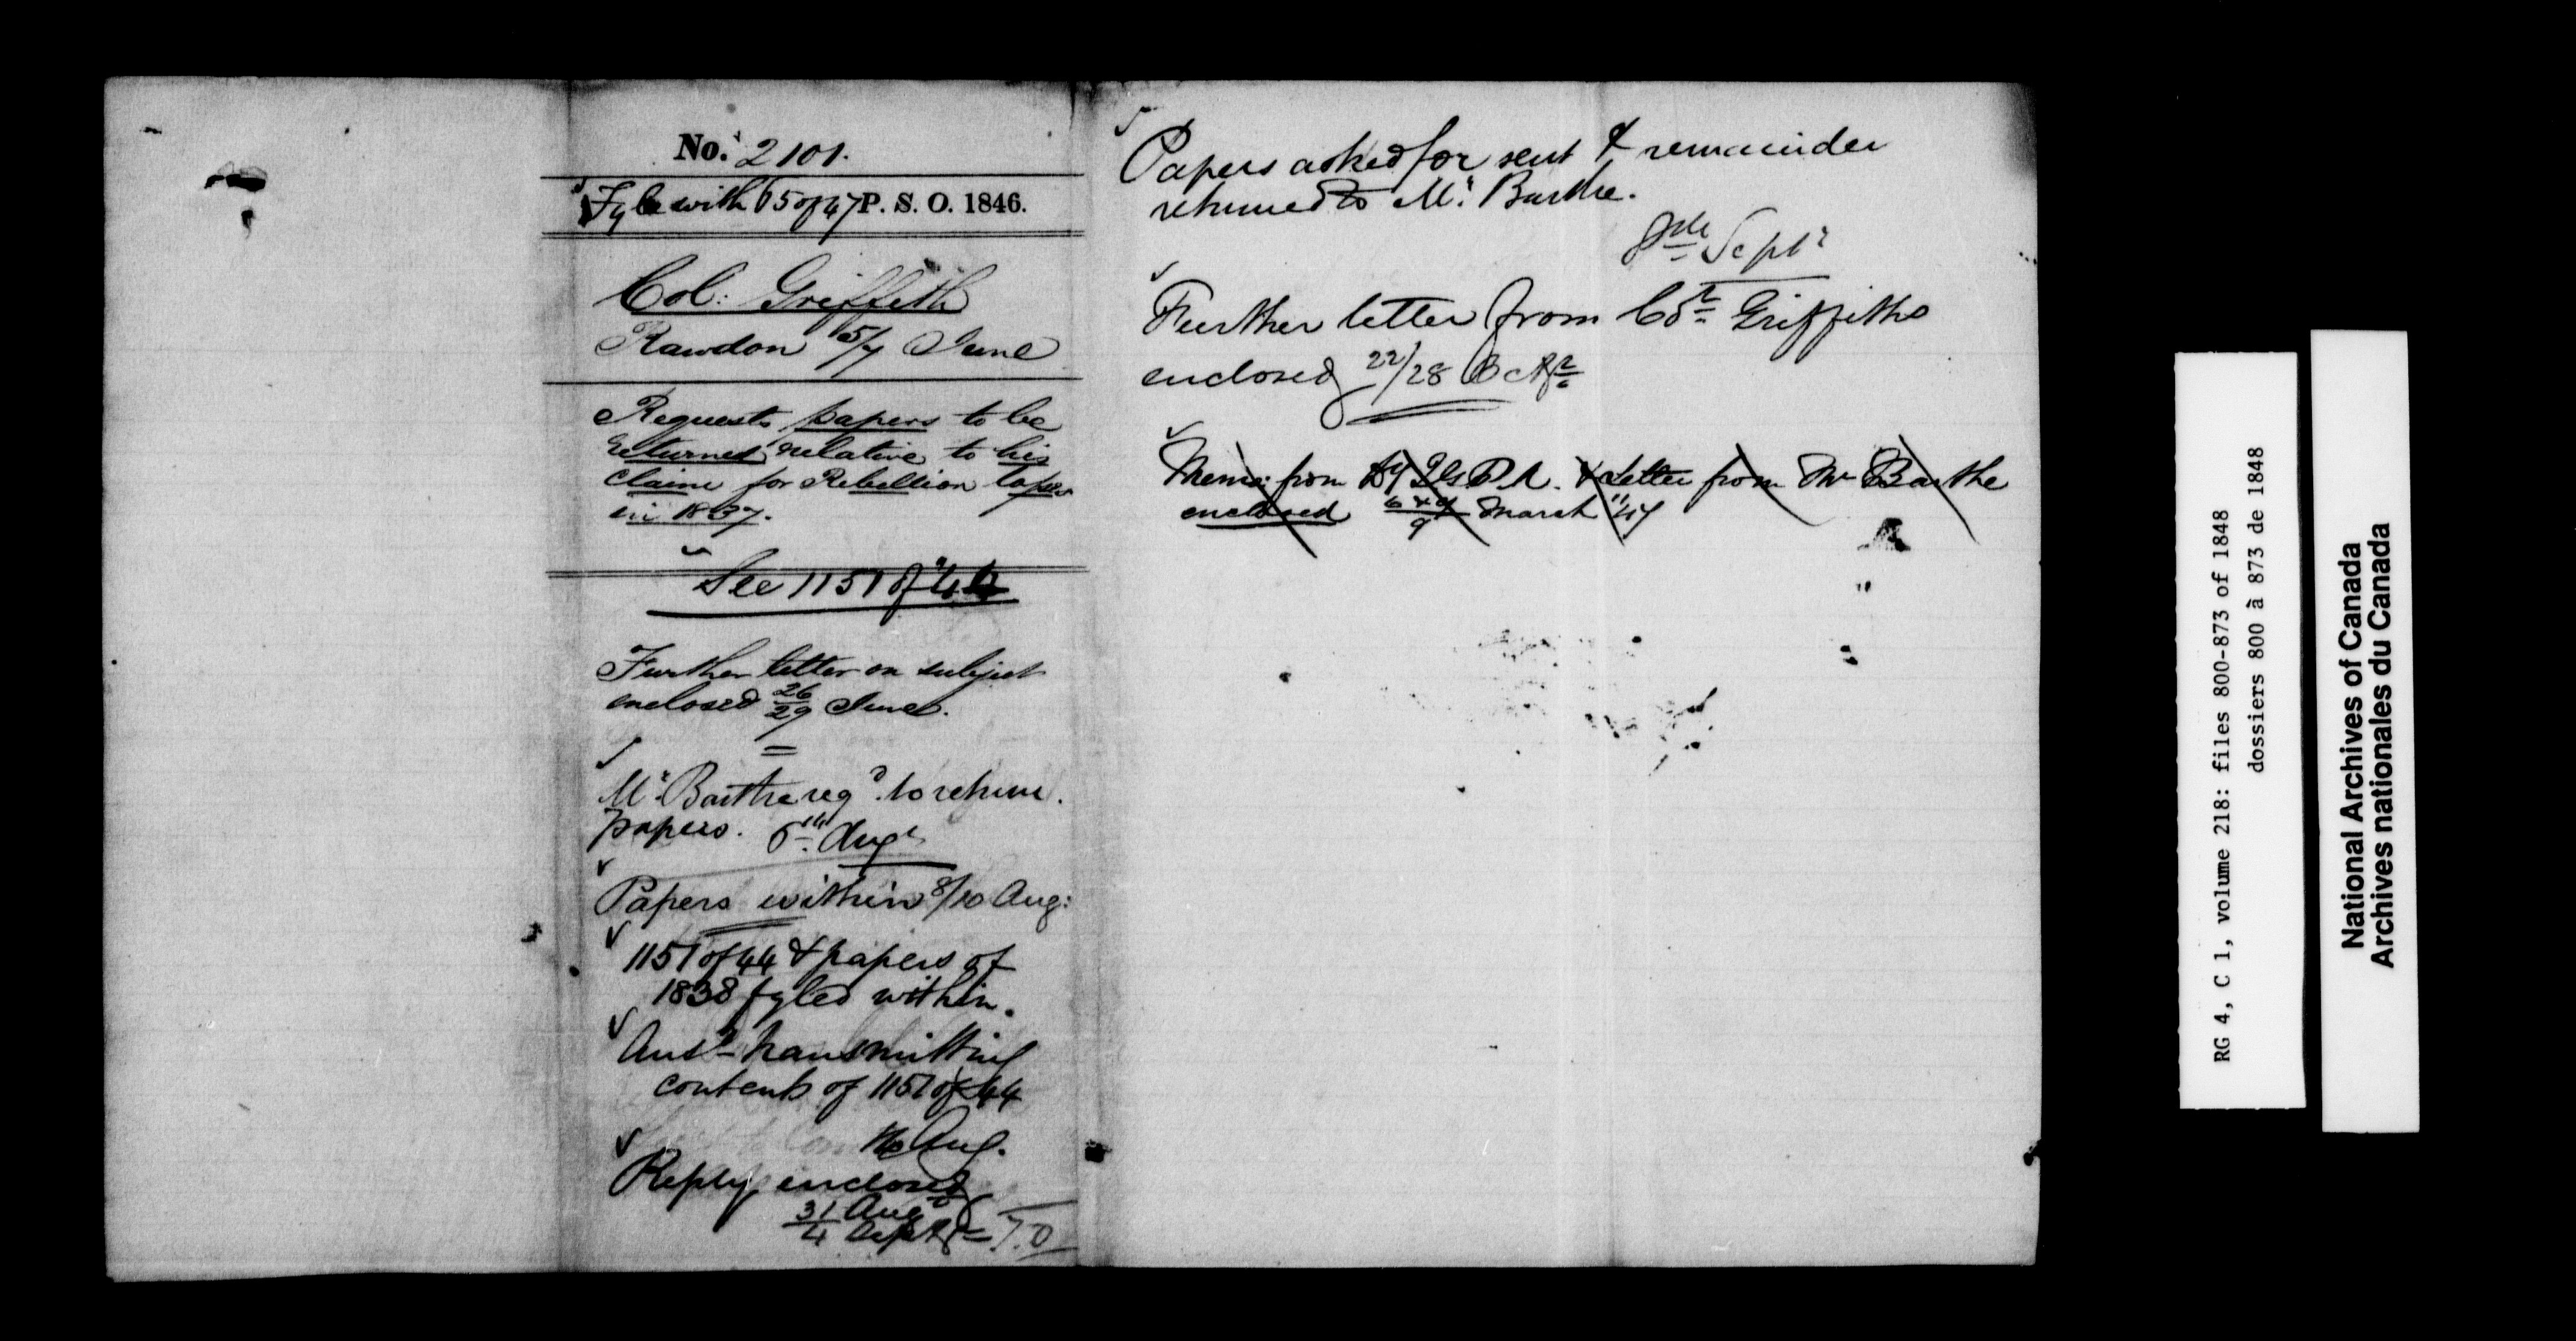 No. 2101.
Fyle with 65 of 47 P. S. O. 1846.
Col: Griffeth
Rawdon 5/7 June
Requests papers to be
returned relative to his
claim for Rebellion losses
in 1837.
See 1151 of 44
Further letter on subject
enclosed 26/29 June.
Mr. Barthe reqd. to return
papers. 6th Augt
Papers within 8/10 Aug:
1151 of 44 & papers of
1838 fyled within.
Ansd transmitting
contents of 1151 of 44
Aug.
Reply enclosed
31 Aug
4 Sept T.O
Papers asked for sent & remainder
returned to Mr. Barthe.
Septr
Further letter from Col Griffiths
enclosed 22/28 Octr
Memo: from & Letter from Mr Barthe
enclosed March 47
RG 4, C 1, volume 218: files 800-873 of 1848
dossiers 800 à 873 de 1848
National Archives of Canada
Archives nationales du Canada